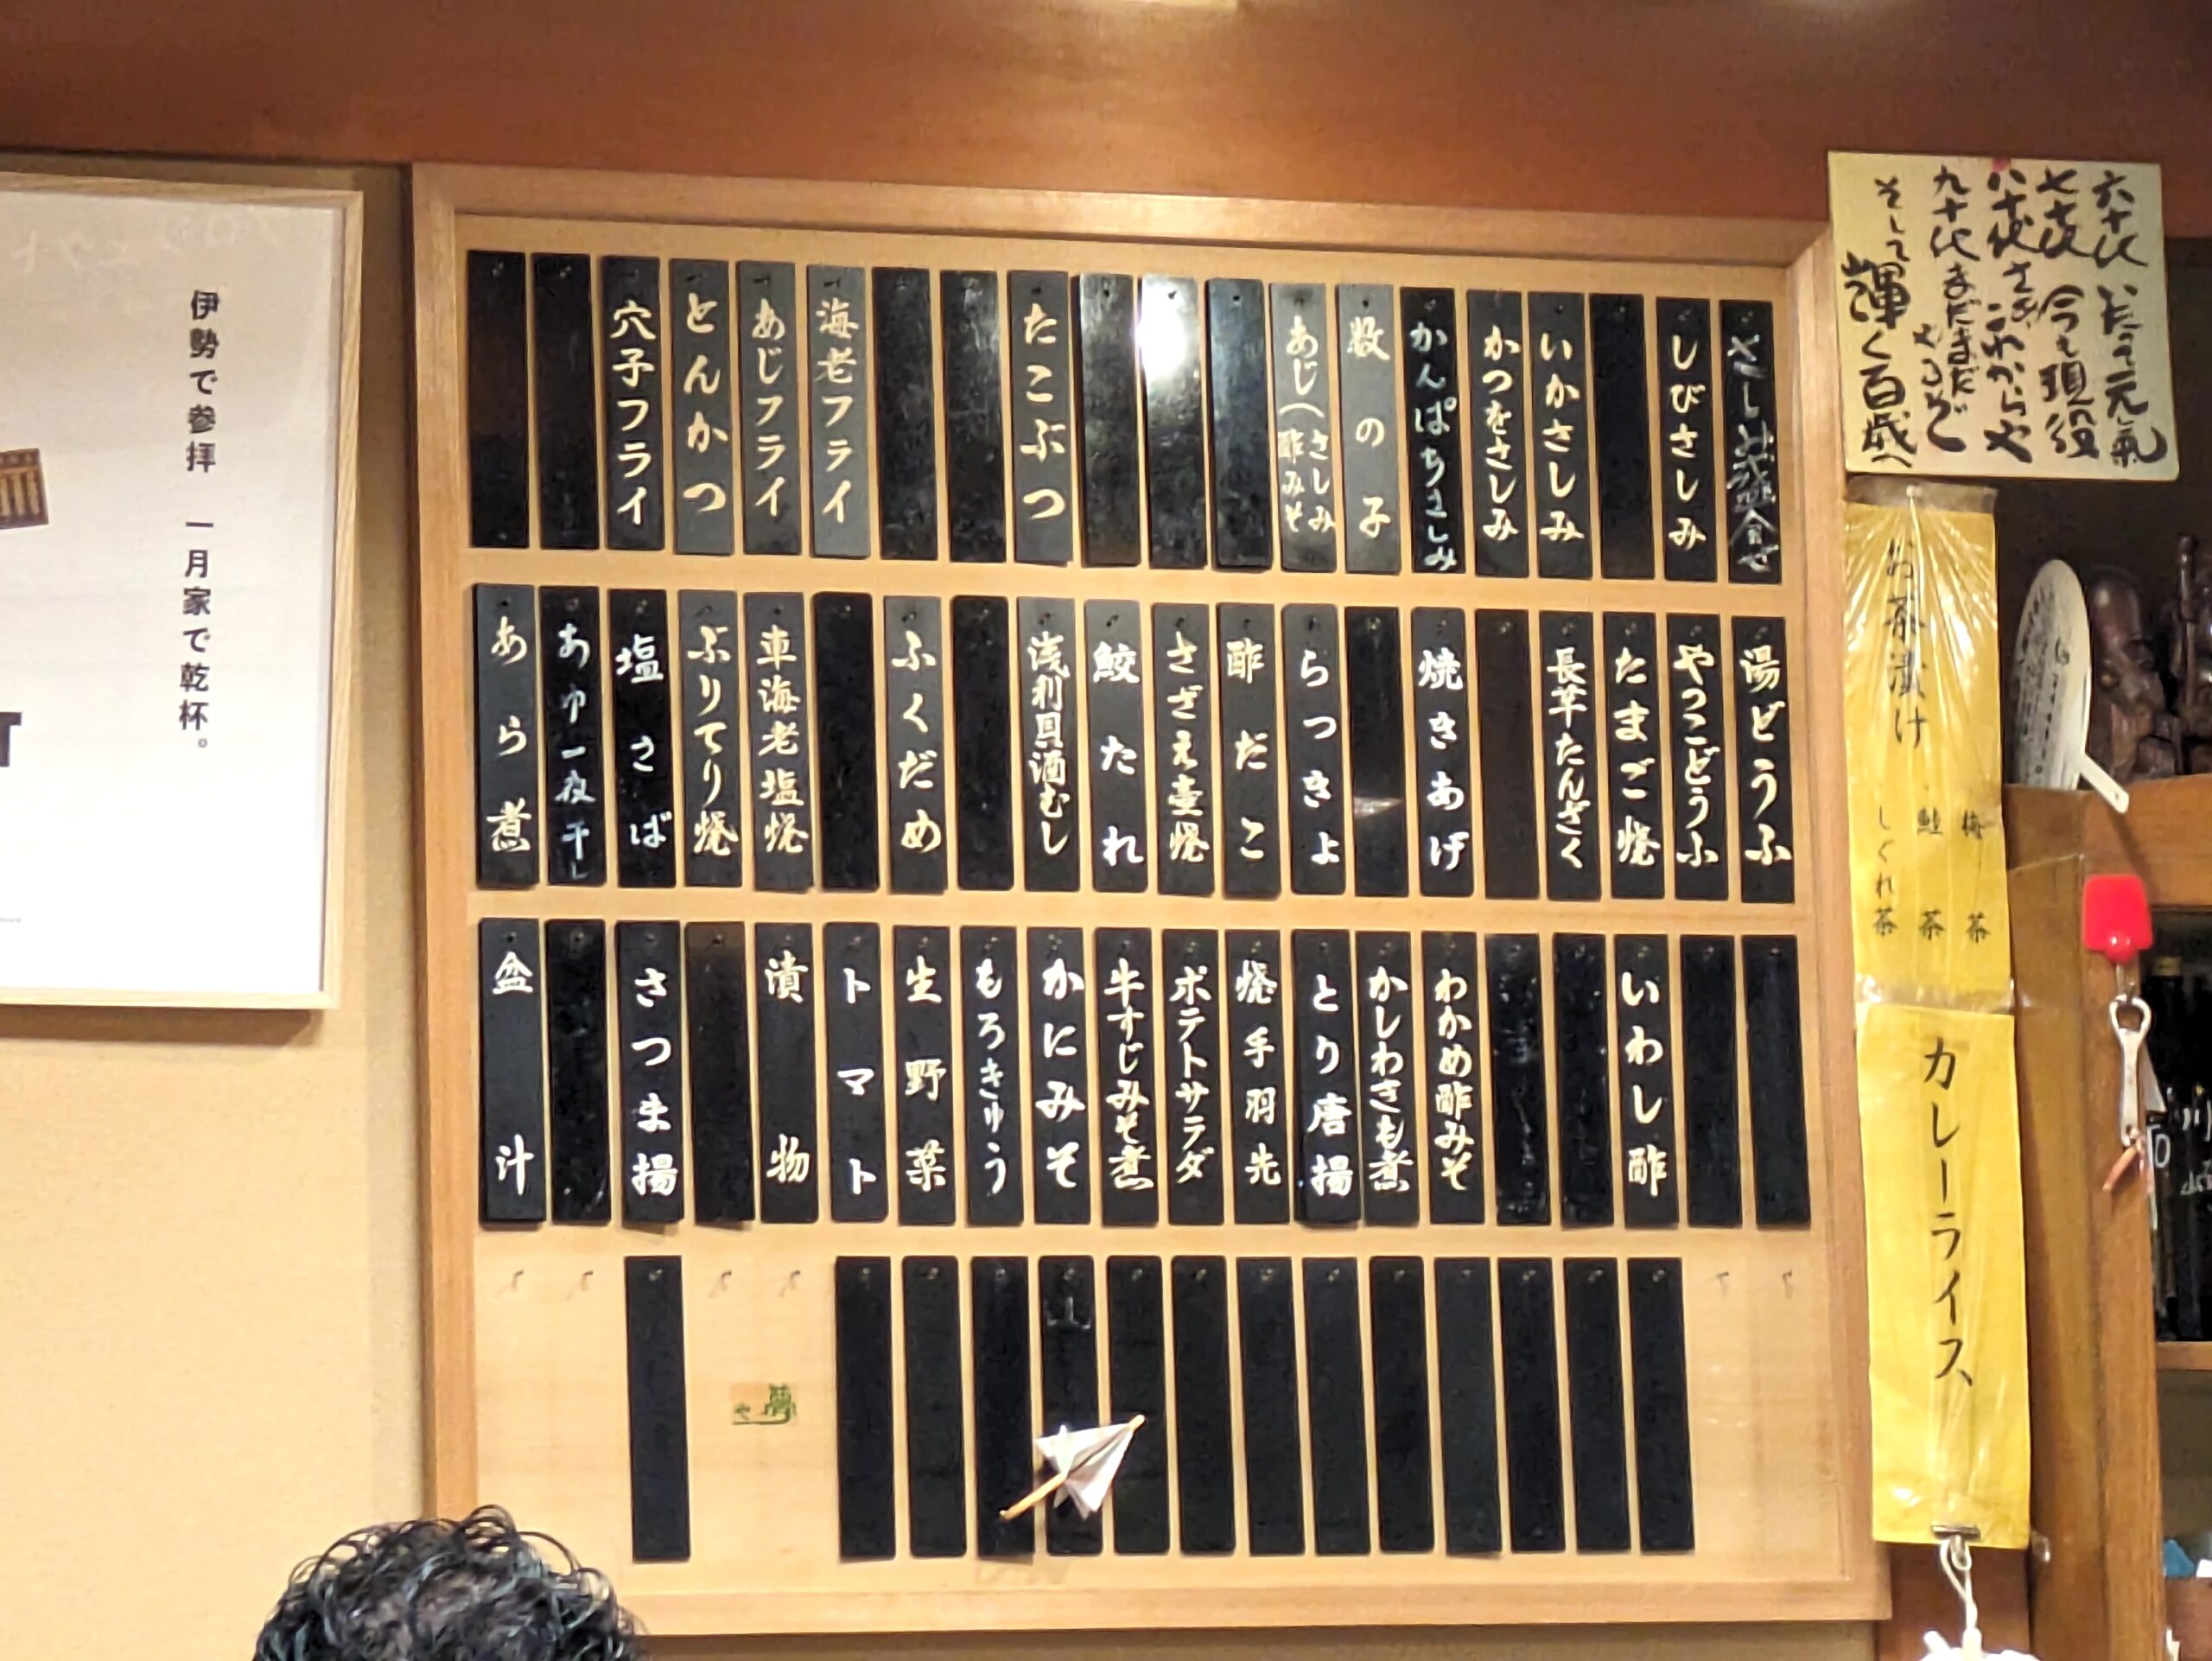 六十代 いたって元氣
七十代 今も現役
八十代 さぁこれからや
九十代 まだまだやるぞ
そして
輝く百歳へ
さしみ盛合せ
しびさしみ
いかさしみ
かつをさしみ
かんぱちさしみ
数の子
あじ(さしみ
酢みそ
たこぶつ
海老フライ
あじフライ
とんかつ
穴子フライ
湯どうふ
やっこどうふ
たまご焼
長芋たんざく
焼きあげ
らっきょ
酢だこ
さざえ壷焼
鮫たれ
浅利貝酒むし
ふくだめ
車海老塩焼
ぶりてり焼
塩さば
あゆ一夜干し
あら煮
いわし酢
わかめ酢みそ
かしわきも煮
とり唐揚
焼手羽先
ポテトサラダ
牛すじみそ煮
かにみそ
もろきゅう
生野菜
トマト
漬物
さつま揚
盆汁
お茶漬け
梅茶
鮭茶
しぐれ茶
カレーライス
伊勢で参拝 一月家で乾杯。